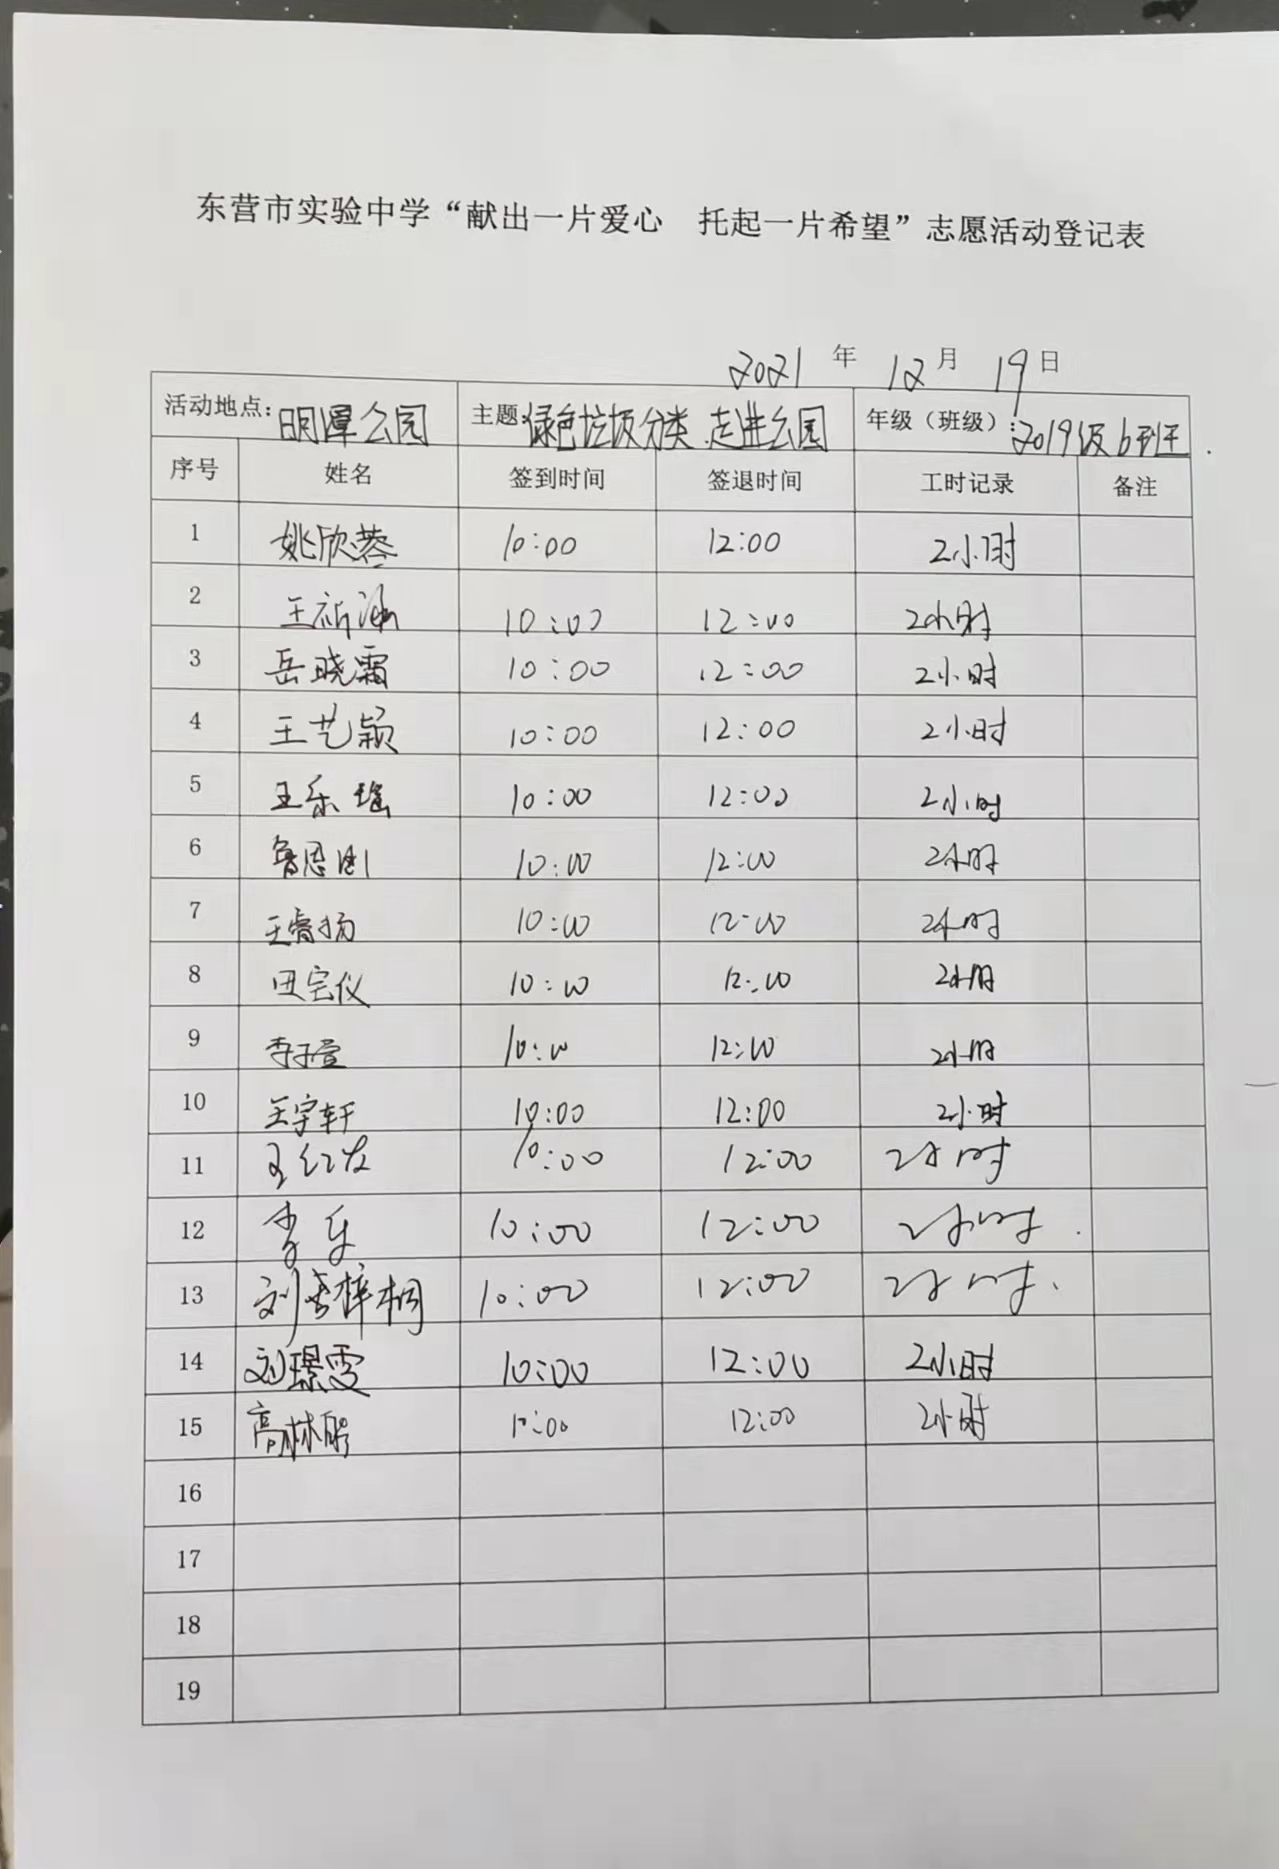 东营市实验中学“献出一片爱心 托起一片希望”志愿活动登记表
2021 年 12 月 19 日
活动地点: 明潭公园 主题: 绿色垃圾分类 走进公园 年级（班级）: 2019级6班
序号 姓名 签到时间 签退时间 工时记录 备注
1 姚欣蓉 10:00 12:00 2小时
2 王祈涵 10:00 12:00 2小时
3 岳晓霜 10:00 12:00 2小时
4 王艺颖 10:00 12:00 2小时
5 王乐瑶 10:00 12:00 2小时
6 鲁恩 10:00 12:00 2小时
7 王睿扬 10:00 12:00 2小时
8 田宝仪 10:00 12:00 2小时
9 李子萱 10:00 12:00 2小时
10 王宇轩 10:00 12:00 2小时
11 王红 10:00 12:00 2小时
12 李乐 10:00 12:00 2小时
13 刘 梓桐 10:00 12:00 2小时
14 刘璟雯 10:00 12:00 2小时
15 高林 10:00 12:00 2小时
16
17
18
19